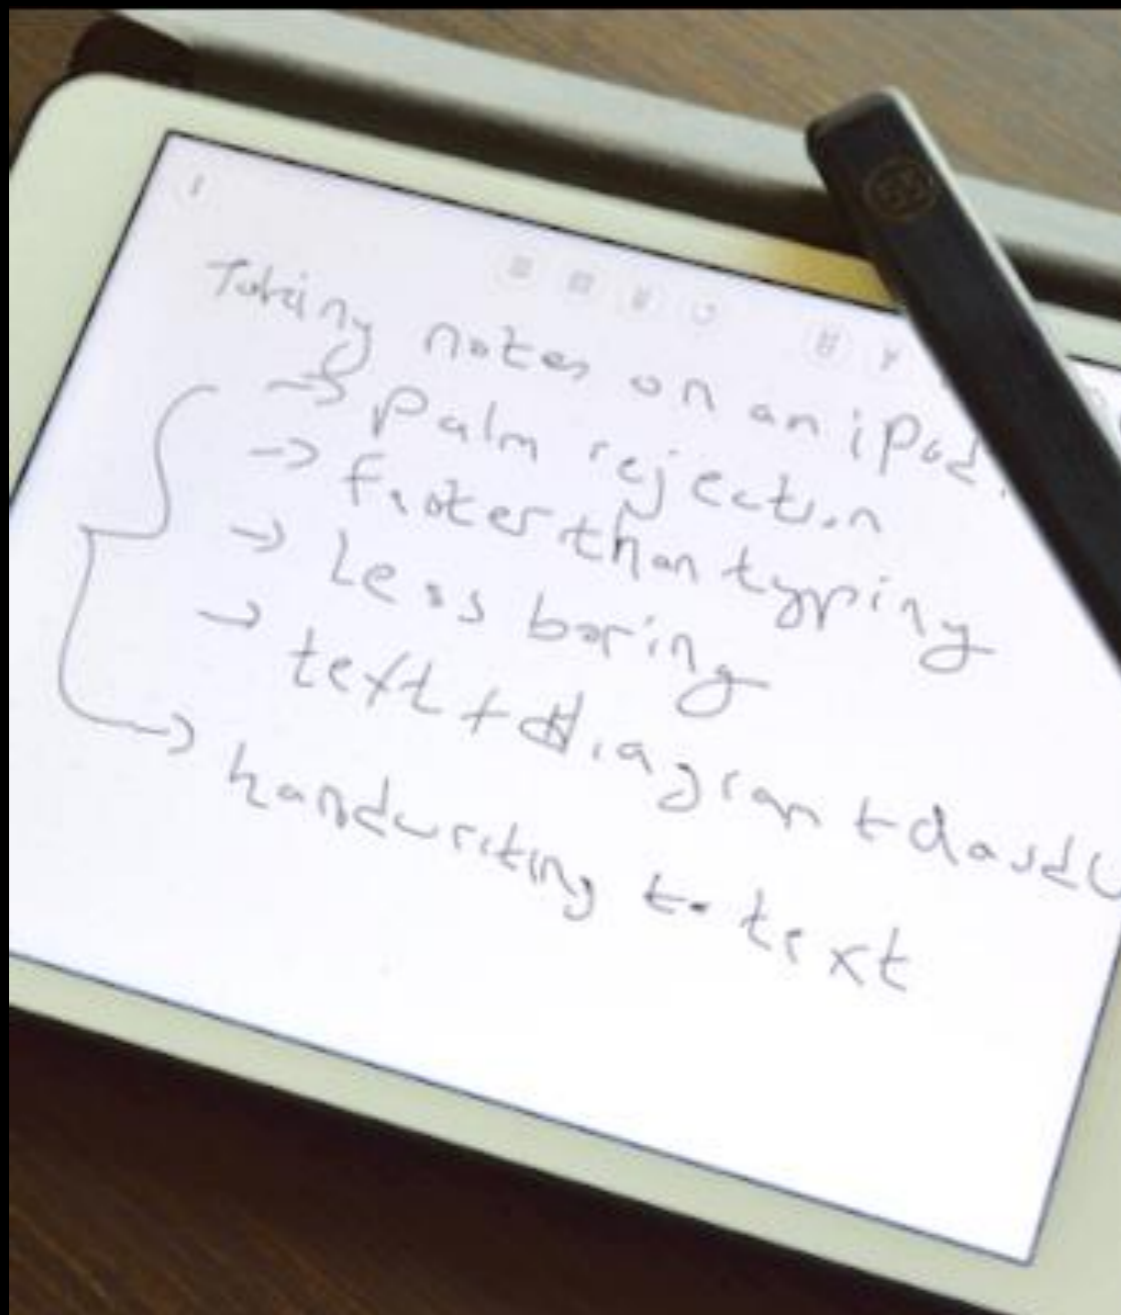 Taking notes on an iPad.
→ Palm rejection
→ faster than typing
→ Less boring
→ text + diagram +
→ handwriting to text
53